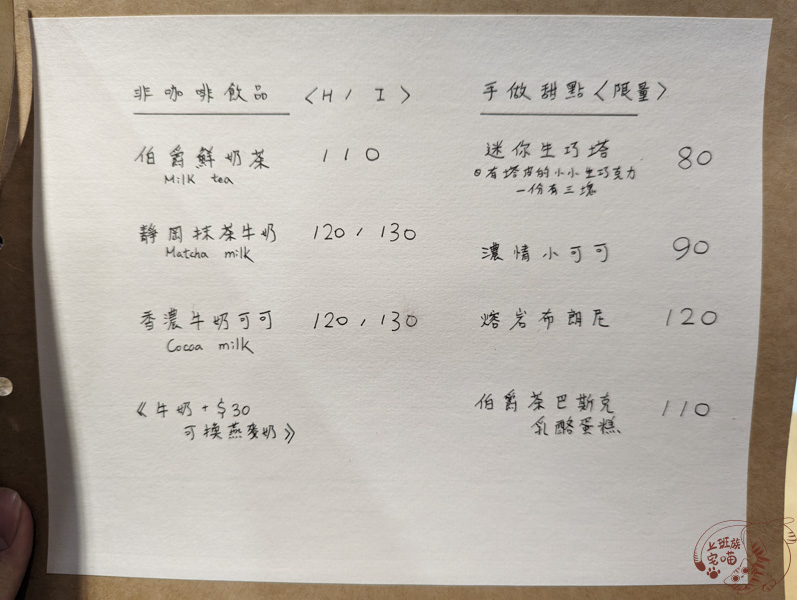 非咖啡飲品 〈H / I〉
伯爵鮮奶茶 110
Milk tea
靜岡抹茶牛奶 120 / 130
Matcha milk
香濃牛奶可可 120 / 130
Cocoa milk
《牛奶+$30
可換燕麥奶》
手做甜點〈限量〉
迷你生巧塔 80
有塔皮的小小生巧克力
一份有三塊
濃情小可可 90
熔岩布朗尼 120
伯爵茶巴斯克 110
乳酪蛋糕
上班族
宅喵